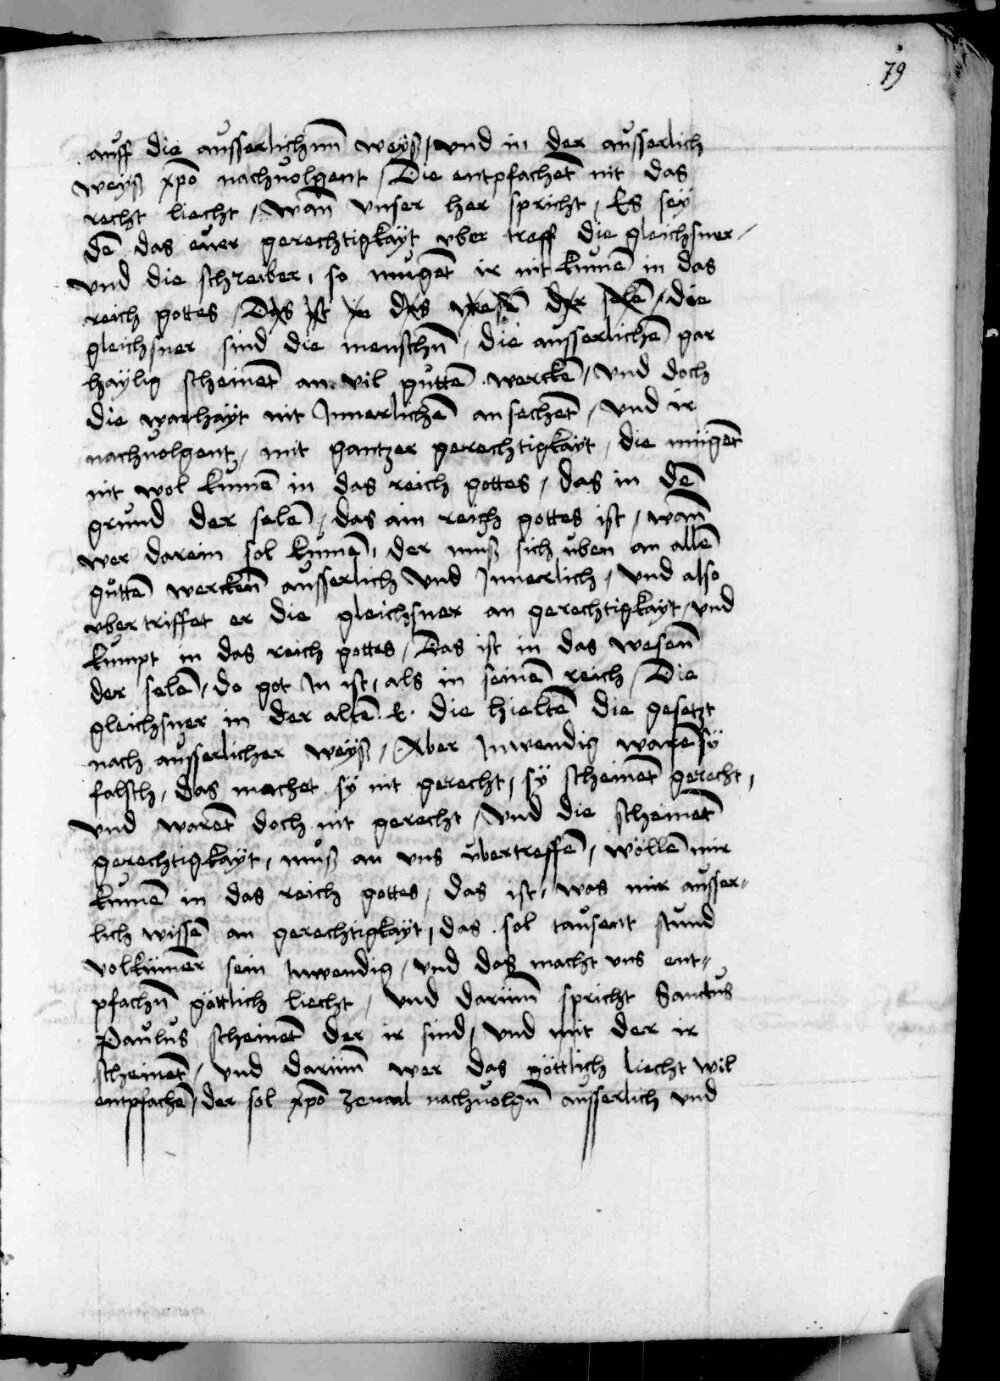 79
auff die ausserlichñ weyß / vnd in der ausserlich
weyß xp̄o nachuolgent / Die entpfachet nit das
recht liecht / wañ vnser her spricht / Es sey
dē das euer gerechtigkayt vber treff die gleichsner /
vnd die schreiber / so muget ir nit kumē in das
reich gottes / Das ist in das wesē der selē / die
gleichsner sind die menschñ / die ausserlichē gar
haylig scheinet an vil guttē werckē / vnd doch
die warhayt nit Innerlichē an sechet / vnd ir
nachuolgent / mit gantzer gerechtigkayt / die müget
nit wol kumē in das reich gottes / das in dē
grund der selē / das ain reich gottes ist / wañ
wer darein sol kumē / der muß sich uben an allē
guttē werckē ausserlich vnd Innerlich / vnd also
vber triffet er die gleichsner an gerechtigkayt / vnd
kumpt in das reich gottes / Das ist in das wesen
der selē / do got In ist / als in seinē reich / Die
gleichsner in der altē .E. die hieltē die gesetzt
nach ausserlicher weyß / Aber Inwendig warē sy
falsch / das machet sy nit gerecht / sy scheinet gerecht /
vnd waret doch nit gerecht / vnd die scheinet
gerechtigkayt / muß an vns vbertreffē / wöllē mir
kumē in das reich gottes / das ist / was mir ausser-
lich wissē an gerechtigkayt / das sol tausent stund
volkümer sein Inwendig / vnd das macht vns ent-
pfachñ göttlich liecht / vnd darüm spricht Sanctus
Paulus scheinet der ir sind / vnd mit der ir
scheinet / vnd darüm wer das göttlich liecht wil
entpfachē / der sol xp̄o zemal nachuolgñ ausserlich vnd